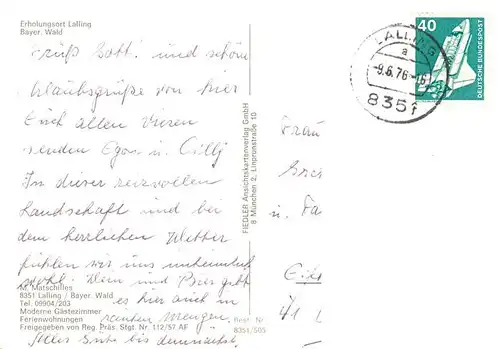 Erholungsort Lalling
Bayer. Wald
Grüß Gott! und schöne
Urlaubsgrüße von hier
Euch allen Vieren
senden Egon u. Cilly
In dieser reizvollen
Landschaft und bei
dem herrlichen Wetter
fühlen wir uns unheimlich
wohl. Wein und Bier gibt
es hier auch in
rauhen Mengen.
Alles Gute bis demnächst
M. Matschilles
8351 Lalling / Bayer. Wald
Tel. 09904/203
Moderne Gästezimmer
Ferienwohnungen
Freigegeben von Reg. Präs. Stgt. Nr. 112/57 AF
Best. Nr
8351/505
FIEDLER Ansichtskartenverlag GmbH
8 München 2, Linprunstraße 10
LALLING
a
-9.6.76-16
8351
40
DEUTSCHE BUNDESPOST
Frau
u. Fa